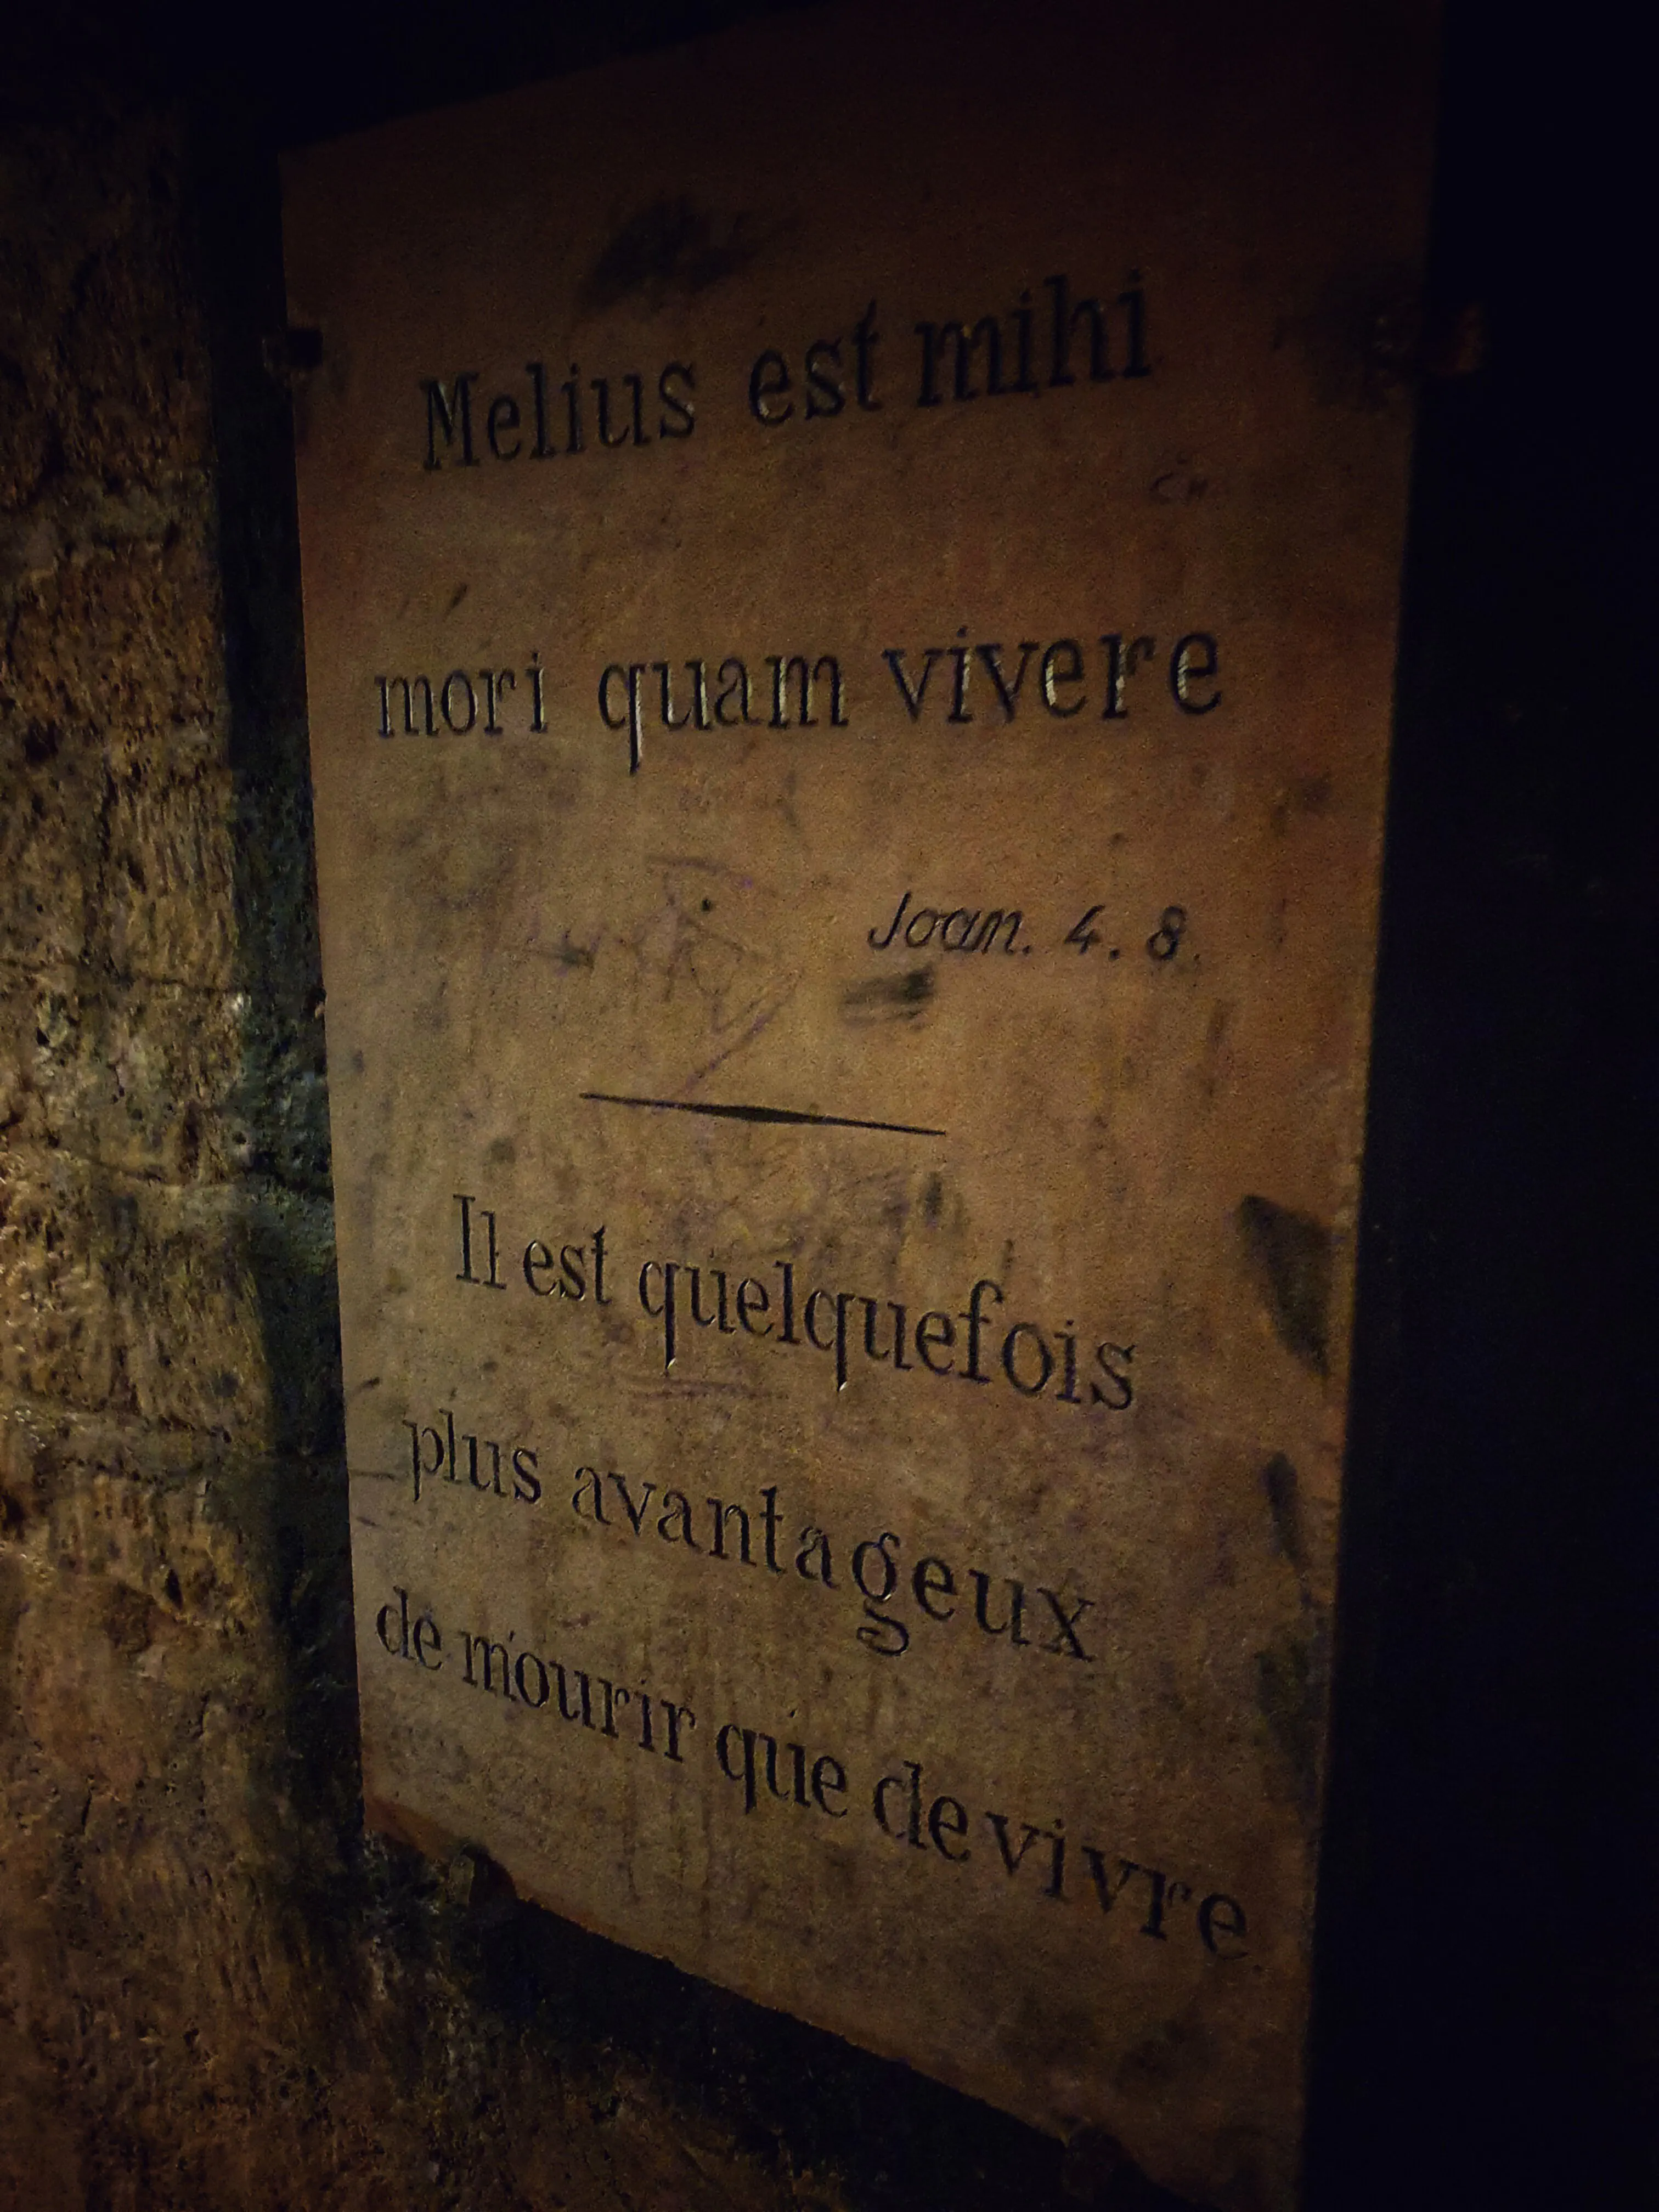 Melius est mihi
mori quam vivere
Joan. 4. 8.
Il est quelquefois
plus avantageux
de mourir que de vivre